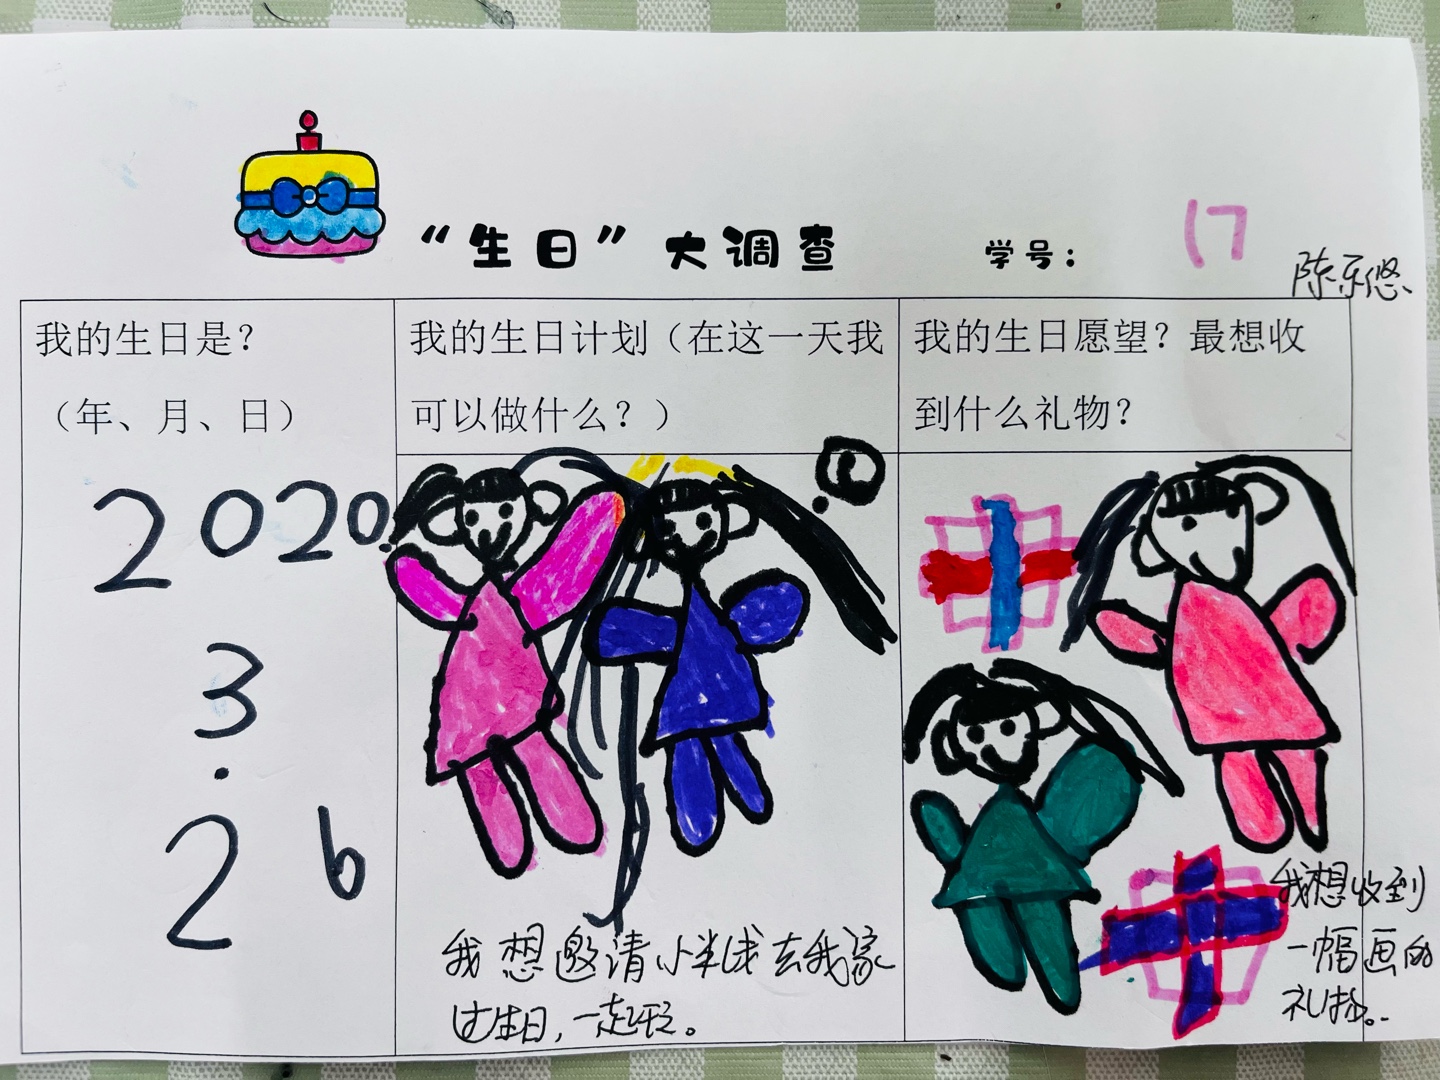 “生日”大调查
学号：
17
陈乐悠
我的生日是？
（年、月、日）
2020.
3
.
2 6
我的生日计划（在这一天我
可以做什么？）
我想邀请小米线去我家
过生日，一起玩。
我的生日愿望？最想收
到什么礼物？
我想收到
一幅画的
礼物。